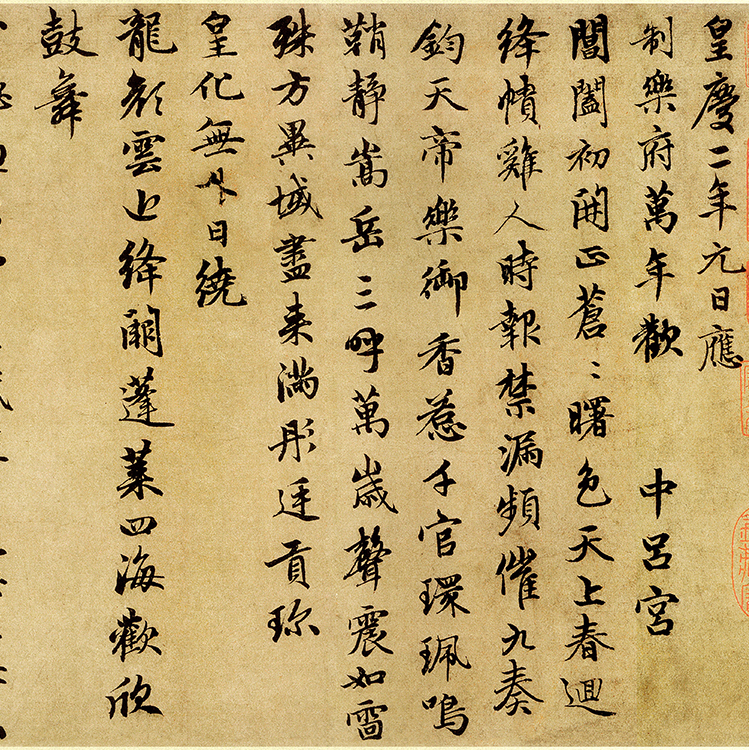 皇慶二年元日應
制樂府萬年歡 中呂宮
閶闔初開正蒼〻曙色天上春迴
絳幘雞人時報禁漏頻催九奏
鈞天帝樂御香惹千官環珮鳴
鞘靜嵩岳三呼萬歲聲震如雷
殊方異域盡来滿彤廷貢珎
皇化無外日繞
龍顏雲近絳闕蓬萊四海歡欣
鼓舞